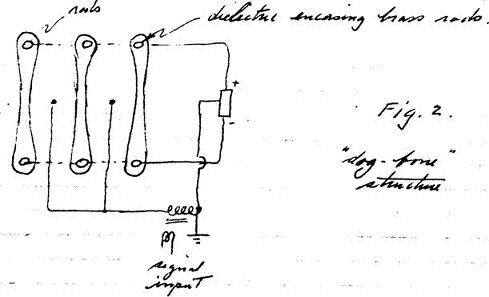 rods
dielectric encasing brass rods.
+
-
Fig. 2.
"dog-bone"
structure
signal
input